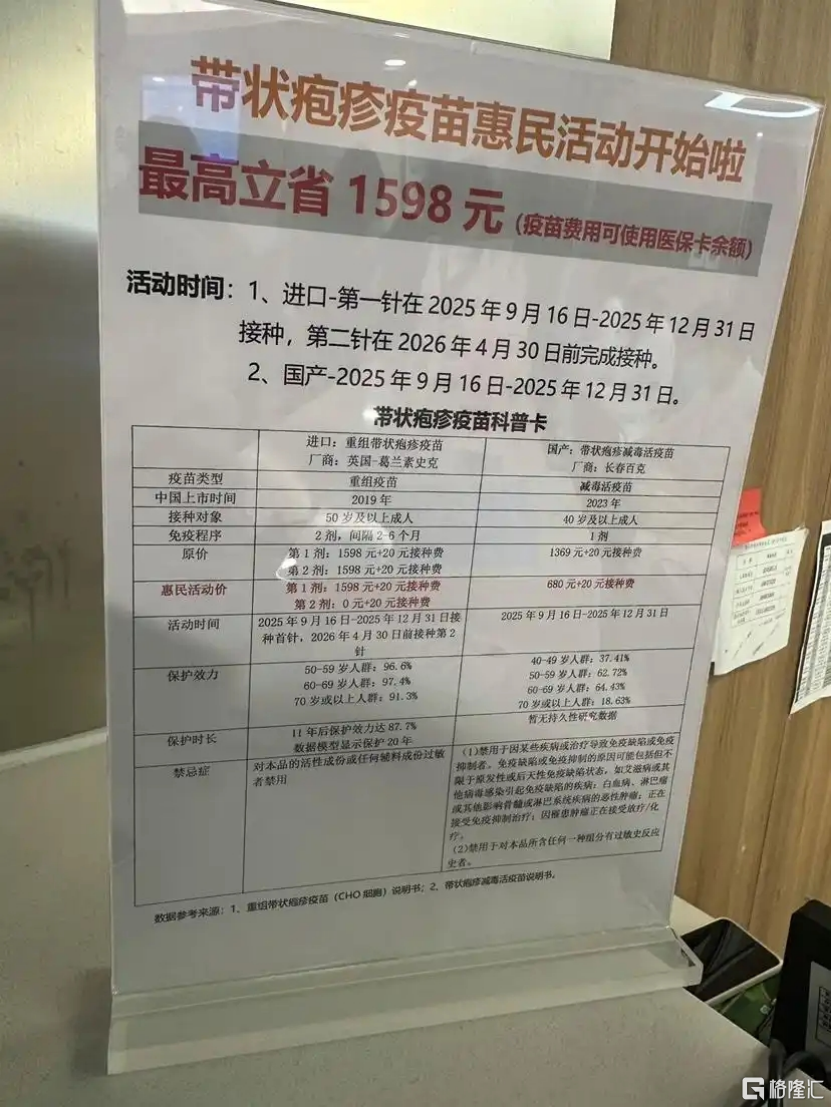 带状疱疹疫苗惠民活动开始啦
最高立省 1598 元（疫苗费用可使用医保卡余额）
活动时间：1、进口-第一针在 2025 年 9 月 16 日-2025 年 12 月 31 日
接种，第二针在 2026 年 4 月 30 日前完成接种。
2、国产-2025 年 9 月 16 日-2025 年 12 月 31 日。
带状疱疹疫苗科普卡
进口：重组带状疱疹疫苗
厂商：英国-葛兰素史克
国产：带状疱疹减毒活疫苗
厂商：长春百克
疫苗类型 重组疫苗 减毒活疫苗
中国上市时间 2019 年 2023 年
接种对象 50 岁及以上成人 40 岁及以上成人
免疫程序 2 剂，间隔 2-6 个月 1 剂
原价 第 1 剂：1598 元+20 元接种费 1369 元+20 元接种费
第 2 剂：1598 元+20 元接种费
惠民活动价 第 1 剂：1598 元+20 元接种费 680 元+20 元接种费
第 2 剂：0 元+20 元接种费
活动时间 2025 年 9 月 16 日-2025 年 12 月 31 日接 2025 年 9 月 16 日-2025 年 12 月 31 日
种首针，2026 年 4 月 30 日前接种第 2
针
保护效力
50-59 岁人群：96.6%
60-69 岁人群：97.4%
70 岁或以上人群：91.3%
40-49 岁人群：37.41%
50-59 岁人群：62.72%
60-69 岁人群：64.43%
70 岁或以上人群：18.63%
保护时长
11 年后保护效力达 87.7%
数据模型显示保护 20 年
暂无持久性研究数据
禁忌症
对本品的活性成份或任何辅料成份过敏
者禁用
（1）禁用于因某些疾病或治疗导致免疫缺陷或免疫
抑制者。免疫缺陷或免疫抑制的原因可能包括但不
限于原发性或后天性免疫缺陷状态，如艾滋病或其
他病毒感染引起免疫缺陷的疾病；白血病、淋巴瘤
或其他影响骨髓或淋巴系统疾病的恶性肿瘤；正在
接受免疫抑制治疗；因罹患肿瘤正在接受放疗/化
疗。
（2）禁用于对本品所含任何一种组分有过敏史反应
史者。
数据参考来源：1、重组带状疱疹疫苗（CHO 细胞）说明书；2、带状疱疹减毒活疫苗说明书。
格隆汇